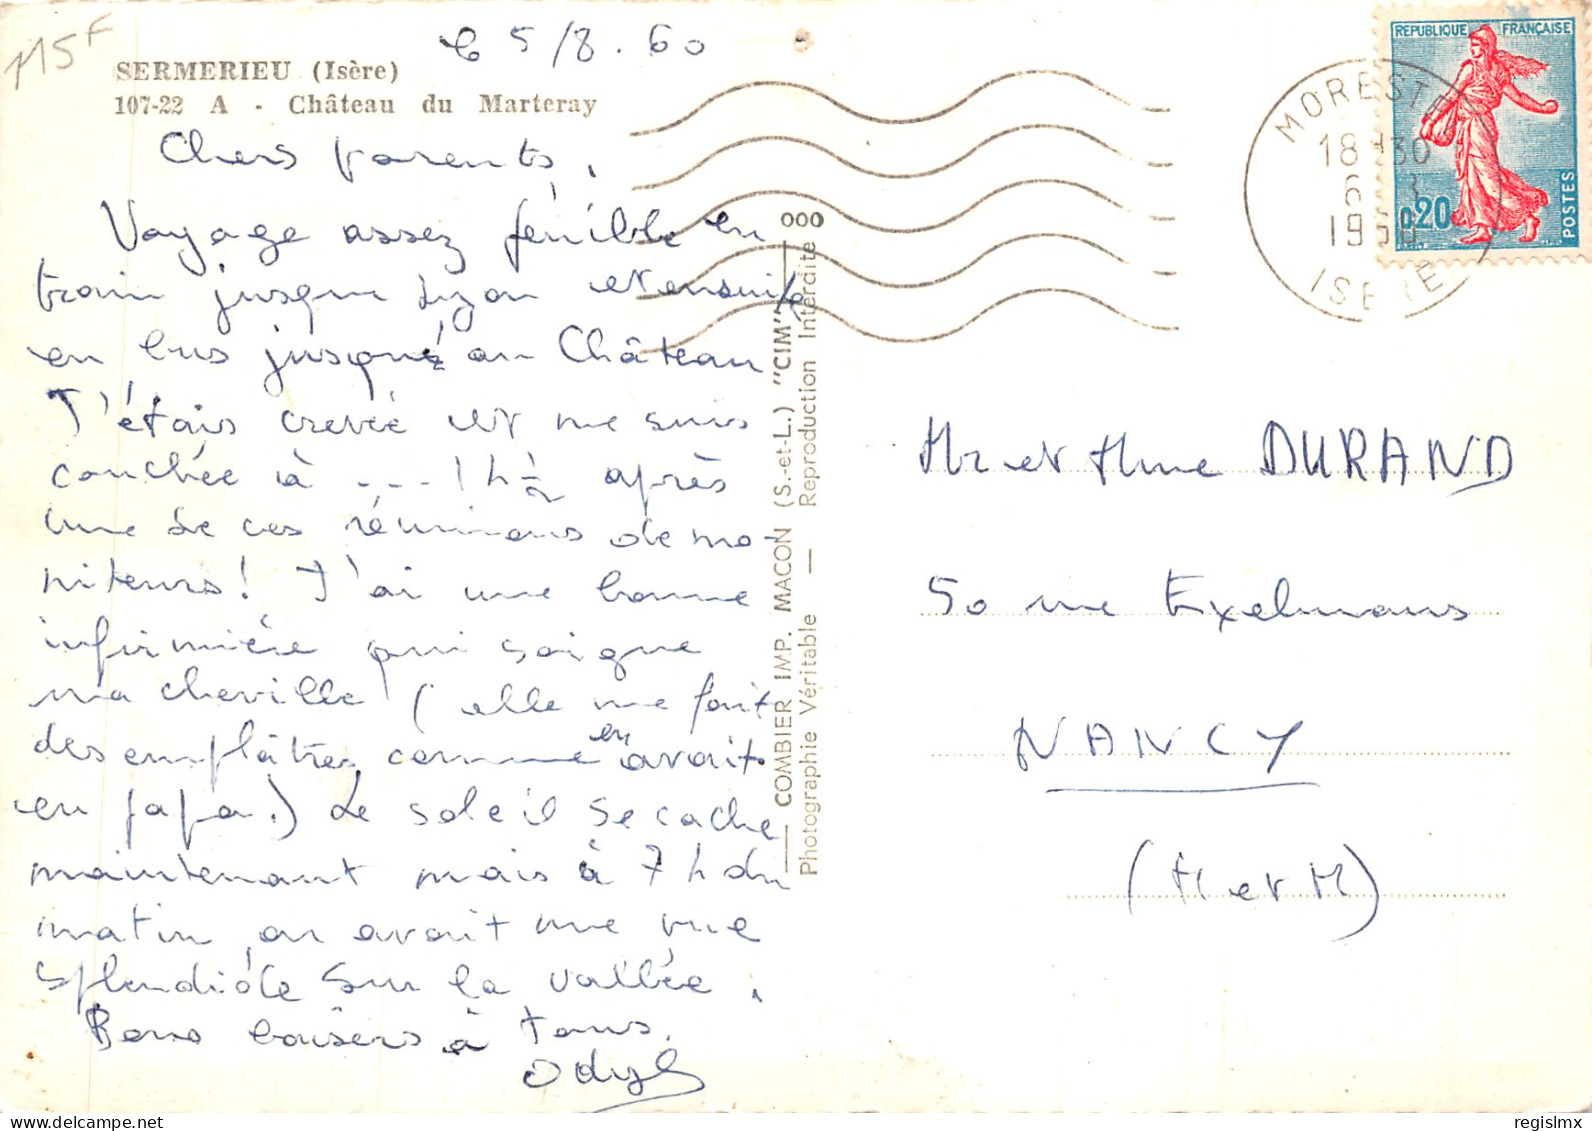 115F
le 5/8.60
SERMERIEU (Isère)
107-22 A - Château du Marteray
Chers parents,
Voyage assez pénible en
train jusque Lyon et ensuite
en bus jusqu'au Château
J'étais crevée et me suis
couchée à ... 1 h ½ après
une de ces réunions de mo-
niteurs! J'ai une bonne
infirmière qui soigne
ma cheville (elle me fait
des emplâtres comme en avait
eu papa.) Le soleil se cache
maintenant mais à 7 h du
matin, on avait une vue
splendide sur la vallée.
Bons baisers à tous.
Odyle
COMBIER IMP. MACON (S.-et-L.) "CIM"
Photographie Véritable — Reproduction Interdite
000
REPUBLIQUE FRANÇAISE
0,20
POSTES
MORESTEL
18H30
6 8
1960
ISERE
Mr et Mme DURAND
50 rue Exelmans
NANCY
(M et M)
regislmx